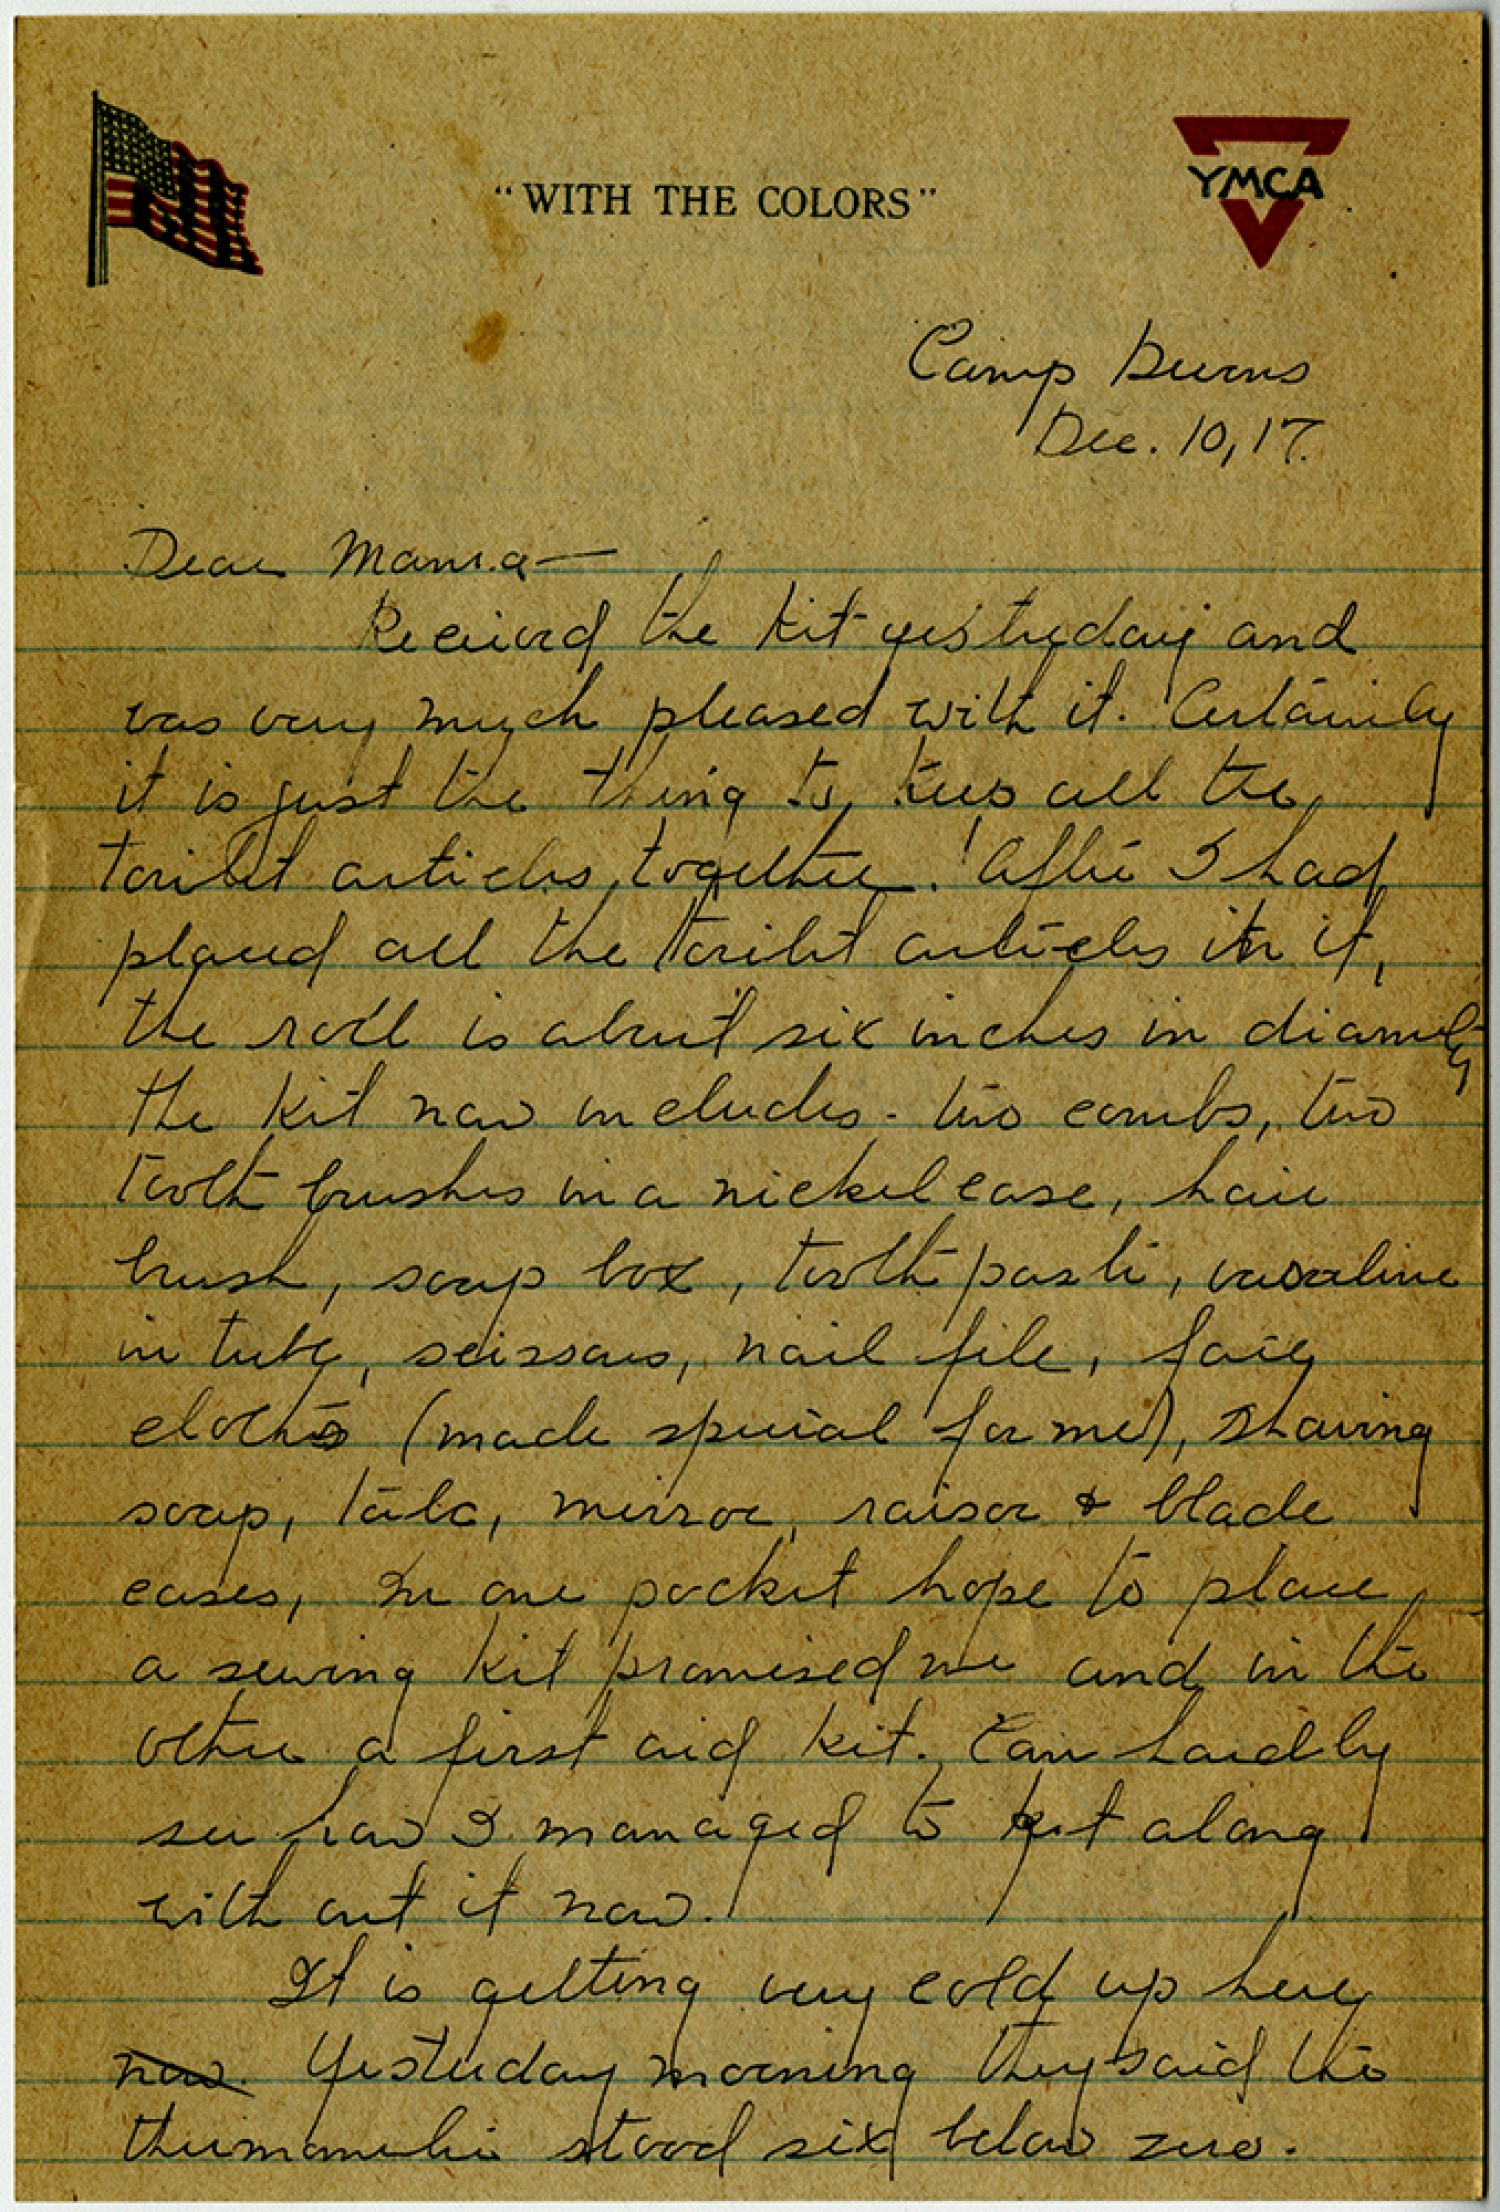 "WITH THE COLORS"
YMCA
Camp Burns
Dec. 10, 17.
Dear Mama—
Received the kit yesterday and
was very much pleased with it. Certainly
it is just the thing to keep all the
toilet articles together. After I had
placed all the toilet articles in it,
the roll is about six inches in diameter
the kit now includes - two combs, two
tooth brushes in a nickel case, hair
brush, soap box, tooth paste, vasaline
in tube, scissors, nail file, face
cloths (made special for me), shaving
soap, talc, mirror, raisor & blade
cases, In one pocket hope to place
a sewing kit promised me and in the
other a first aid kit. Can hardly
see how I managed to get along
with out it now.
It is getting very cold up here
now. Yesterday morning they said the
thermometer stood six below zero.